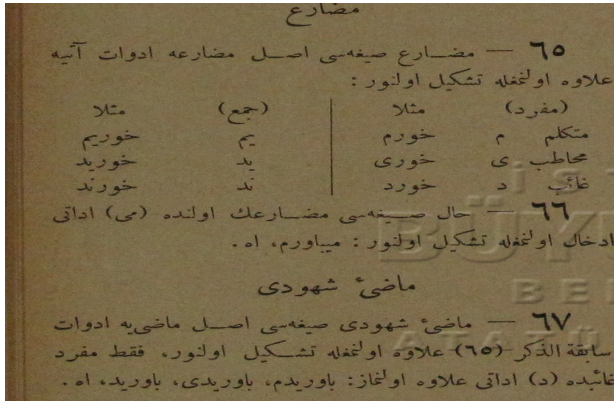 مضارع
٦٥ — مضـارع صيغه‌سى اصـل مضارعه ادوات آتيه
علاوه اولنمغله تشكيل اولنور :
(مفرد) مثلا (جمع) مثلا
متكلم م خورم يم خوريم
مخاطب ى خورى يد خوريد
غائب د خورد ند خورند
٦٦ — حال صيغه‌سى مضـارعك اولنده (مى) اداتى
ادخال اولنمغله تشكيل اولنور : مياورم، اه.
ماضىٔ شهودى
٦٧ — ماضىٔ شهودى صيغه‌سى اصـل ماضى‌يه ادوات
سابقة الذكر (٦٥) علاوه اولنمغله تشـكيل اولنور، فقط مفرد
غائبده (د) اداتى علاوه اولنماز: باوريدم، باوريدى، باوريد، اه.